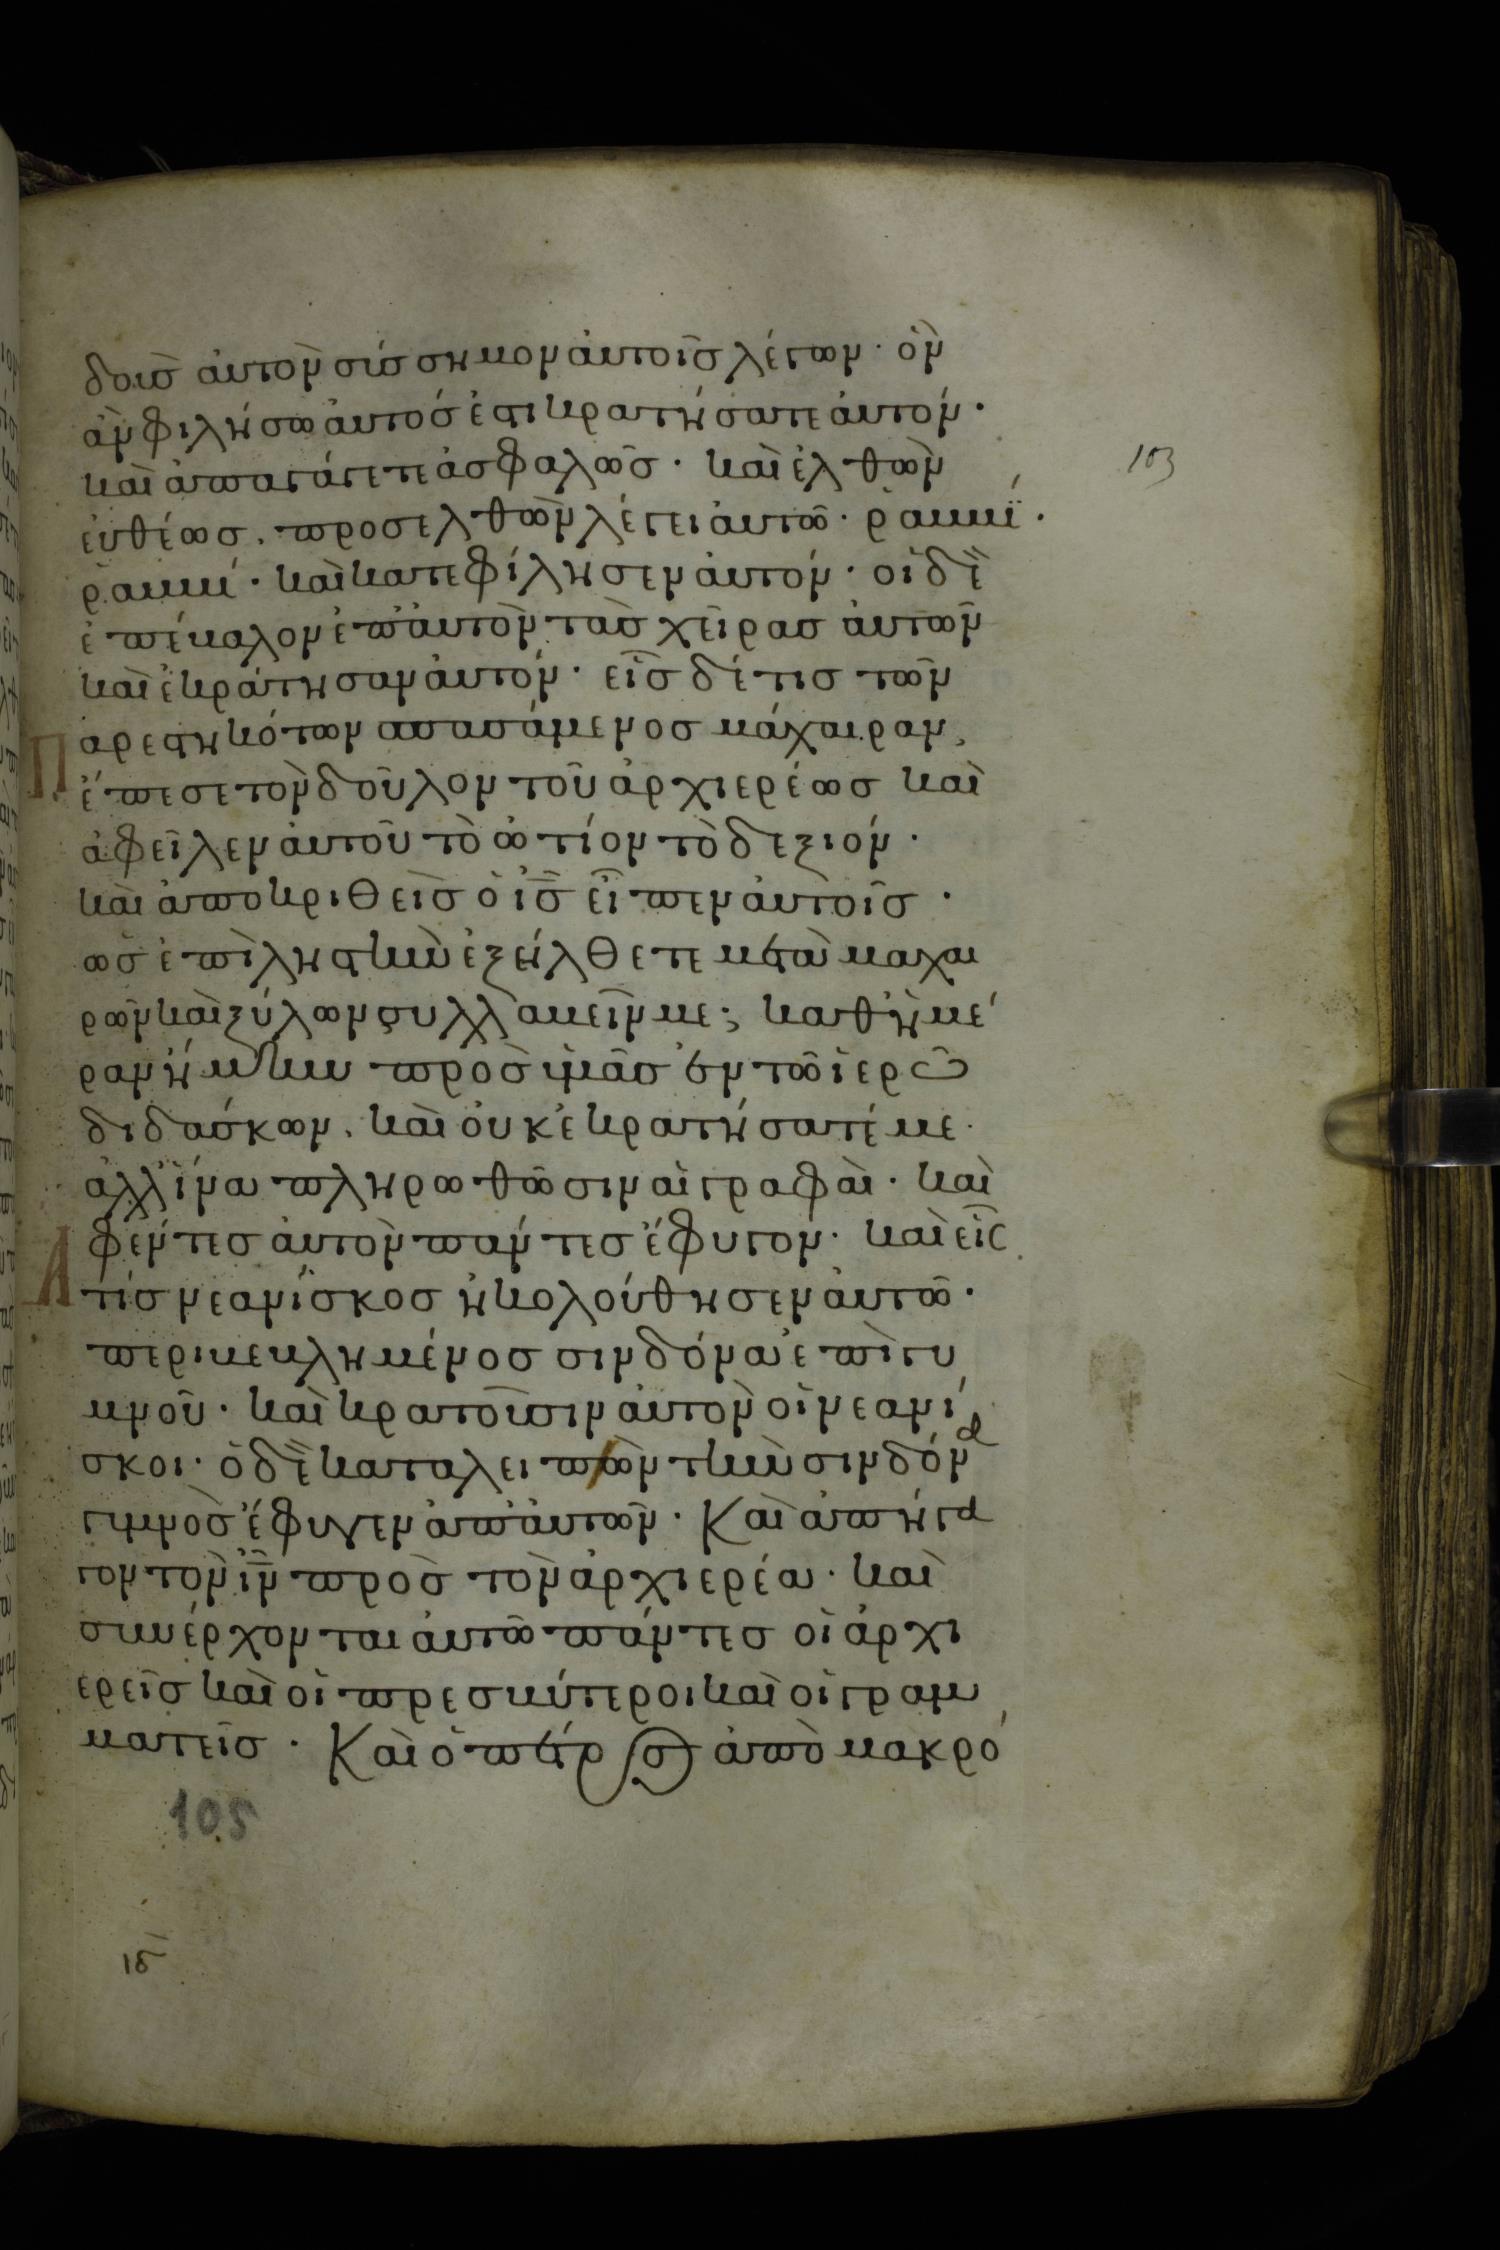 δοὺς αὐτὸν σύσσημον αὐτοῖς λέγων· ὃν
ἂν φιλήσω αὐτός ἐστι κρατήσατε αὐτόν·
καὶ ἀπαγάγετε ἀσφαλῶς· καὶ ἐλθὼν
103
εὐθέως, προσελθὼν λέγει αὐτῶ· ῥαββΐ·
ῥαββί· καὶ κατεφίλησεν αὐτόν· οἱ δὲ
ἐπέβαλον ἐπ' αὐτὸν τὰς χεῖρας αὐτῶν
καὶ ἐκράτησαν αὐτόν· εἷς δέ τις τῶν
Παρεστηκότων σπασάμενος μάχαιραν,
ἔπεσε τὸν δοῦλον τοῦ ἀρχιερέως καὶ
ἀφεῖλεν αὐτοῦ τὸ ὠτίον τὸ δεξιόν·
καὶ ἀποκριθεὶς ὁ ις̅ εἶπεν αὐτοῖς·
ὡς ἐπὶ ληστὴν ἐξήλθετε μετὰ μαχαι
ρῶν καὶ ξύλων συλλαβεῖν με; καθ' ἡμέ
ραν ἤμην πρὸς ὑμᾶς ἐν τῶ ἱερῶ
διδάσκων, καὶ οὐκ ἐκρατήσατέ με·
ἀλλ' ἵνα πληρωθῶσιν αἱ γραφαὶ· καὶ
Ἀφέντες αὐτὸν πάντες ἔφυγον· καὶ εἷς
τίς νεανΐσκος ἠκολούθησεν αὐτῶ·
περιβεβλημένος σινδόνα ἐπὶ γυ
μνοῦ· καὶ κρατοῦσιν αὐτὸν οἱ νεανί
σκοι· ὁ δὲ καταλειπὼν τὴν σινδόνα
γυμνὸς ἔφυγεν ἀπ' αὐτῶν· Καὶ ἀπήγα
γον τὸν ιν̅ πρὸς τὸν ἀρχιερέα· καὶ
συνέρχονται αὐτῶ πάντες οἱ ἀρχι
ερεῖς καὶ οἱ πρεσβύτεροι καὶ οἱ γραμ
ματεῖς· Καὶ ὁ πέτρος ἀπὸ μακρό
105
ιδ